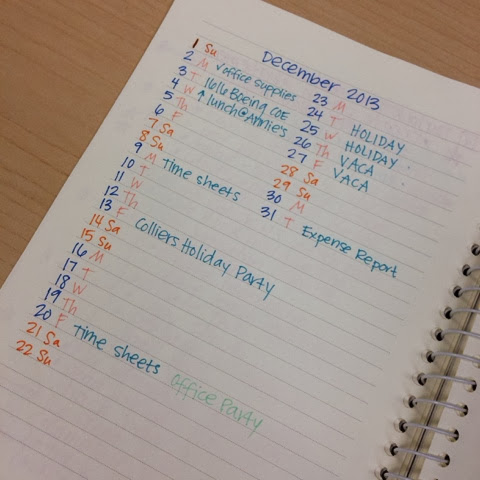 December 2013
1 Su
2 M ✓office supplies
3 T 1616 Boeing COE
4 W ↑ lunch@Annie's
5 Th
6 F
7 Sa
8 Su
9 M time sheets
10 T
11 W
12 Th
13 F Colliers Holiday Party
14 Sa
15 Su
16 M
17 T
18 W
19 Th
20 F time sheets Office Party
21 Sa
22 Su
23 M
24 T HOLIDAY
25 W HOLIDAY
26 Th VACA
27 F VACA
28 Sa
29 Su
30 M
31 T Expense Report